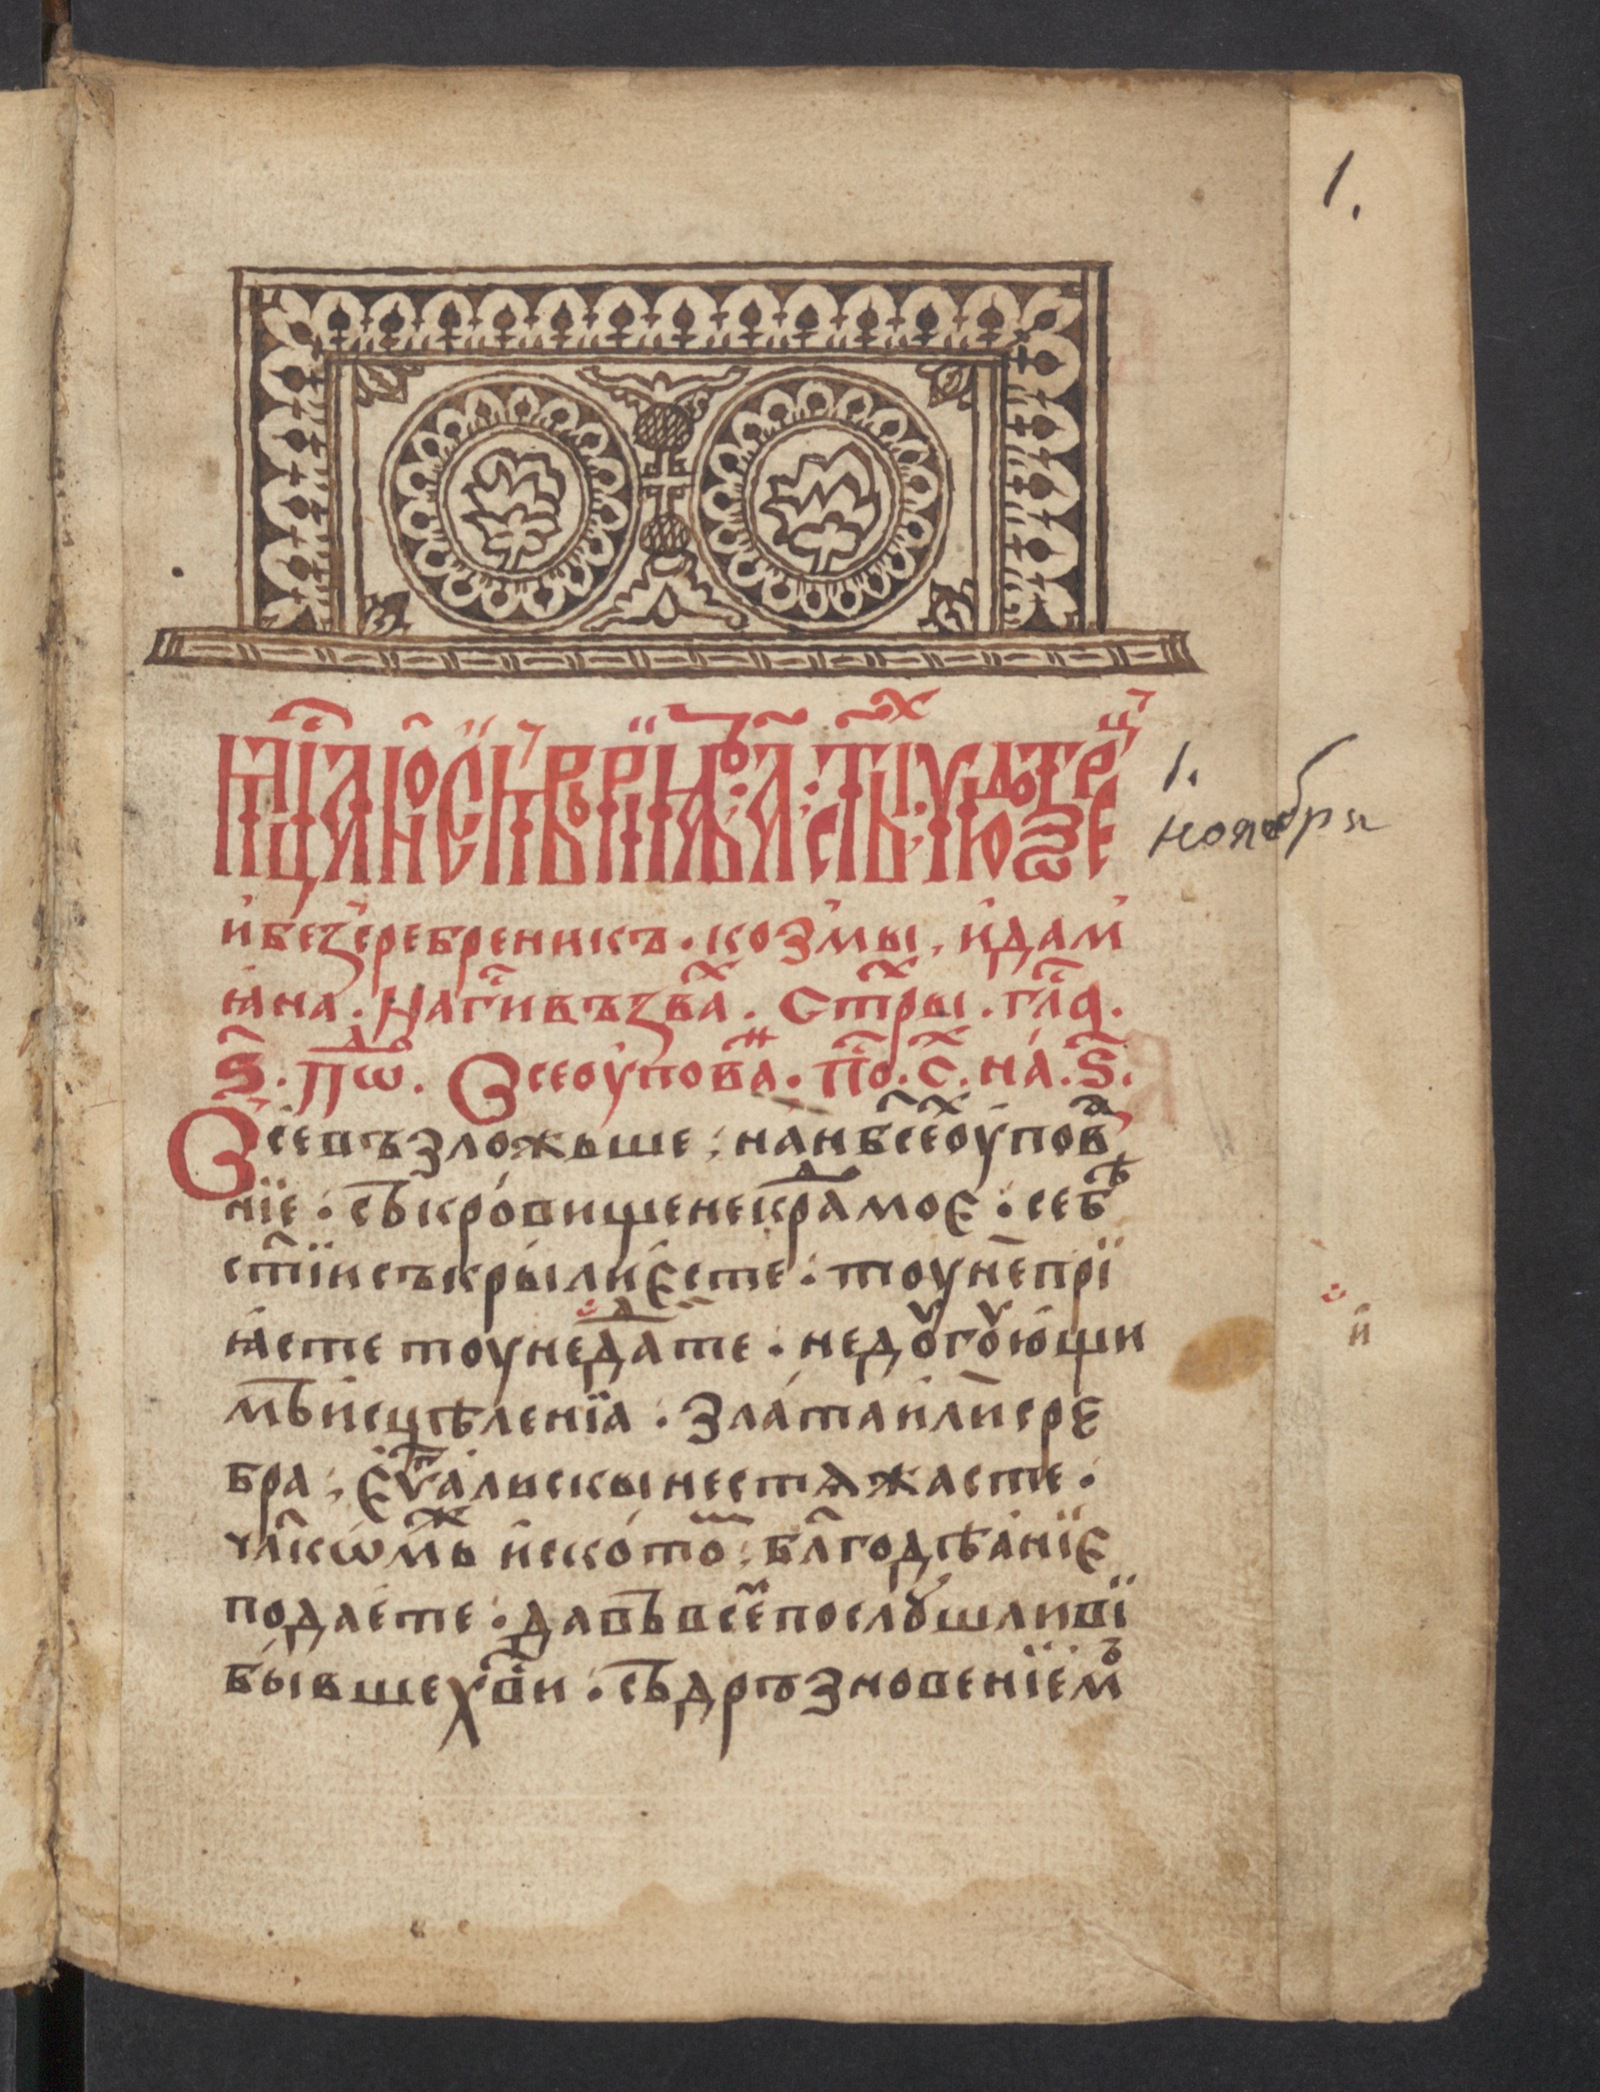 1.
мц҃а ноꙗ҆брїа въ а҃ ст҃ыхъ чюдотворець
1.
ноября
и҆беꙁсеребреникъ · коꙁмы, и҆дамі
ꙗ҆на · На гд҃и въꙁва̑х · Стⷯры · гла҃ ·
ѕ҃ · пѡⷣ · Все оу҆поваⷩ · п̾о · с · на · ѕ҃ ·
Всевъꙁложьше ; нан҃бсеⷯоу҆повⷶ
нїе · съ҆кро́вищенекраⷣмоє · себⷷ
ст҃їисъкры́лиє҆сте · тоунепрї
ꙗ҆сте тоунедаⷭ҇те · недꙋгꙋю҆щи
мъи҆сцѣленїа · Зла́таи҆лисрє
бра ; є҆ѵⷢ҇а́льскынестѧжасте ·
чл҃кѡ́мжⷤь и҆ско́томⷨ ; бл҃годѣа́нїє
пода́е҆те · давъвсеⷨпослꙋшливї
бы́вшехв҃и · съдръꙁновенїемъ
и҆